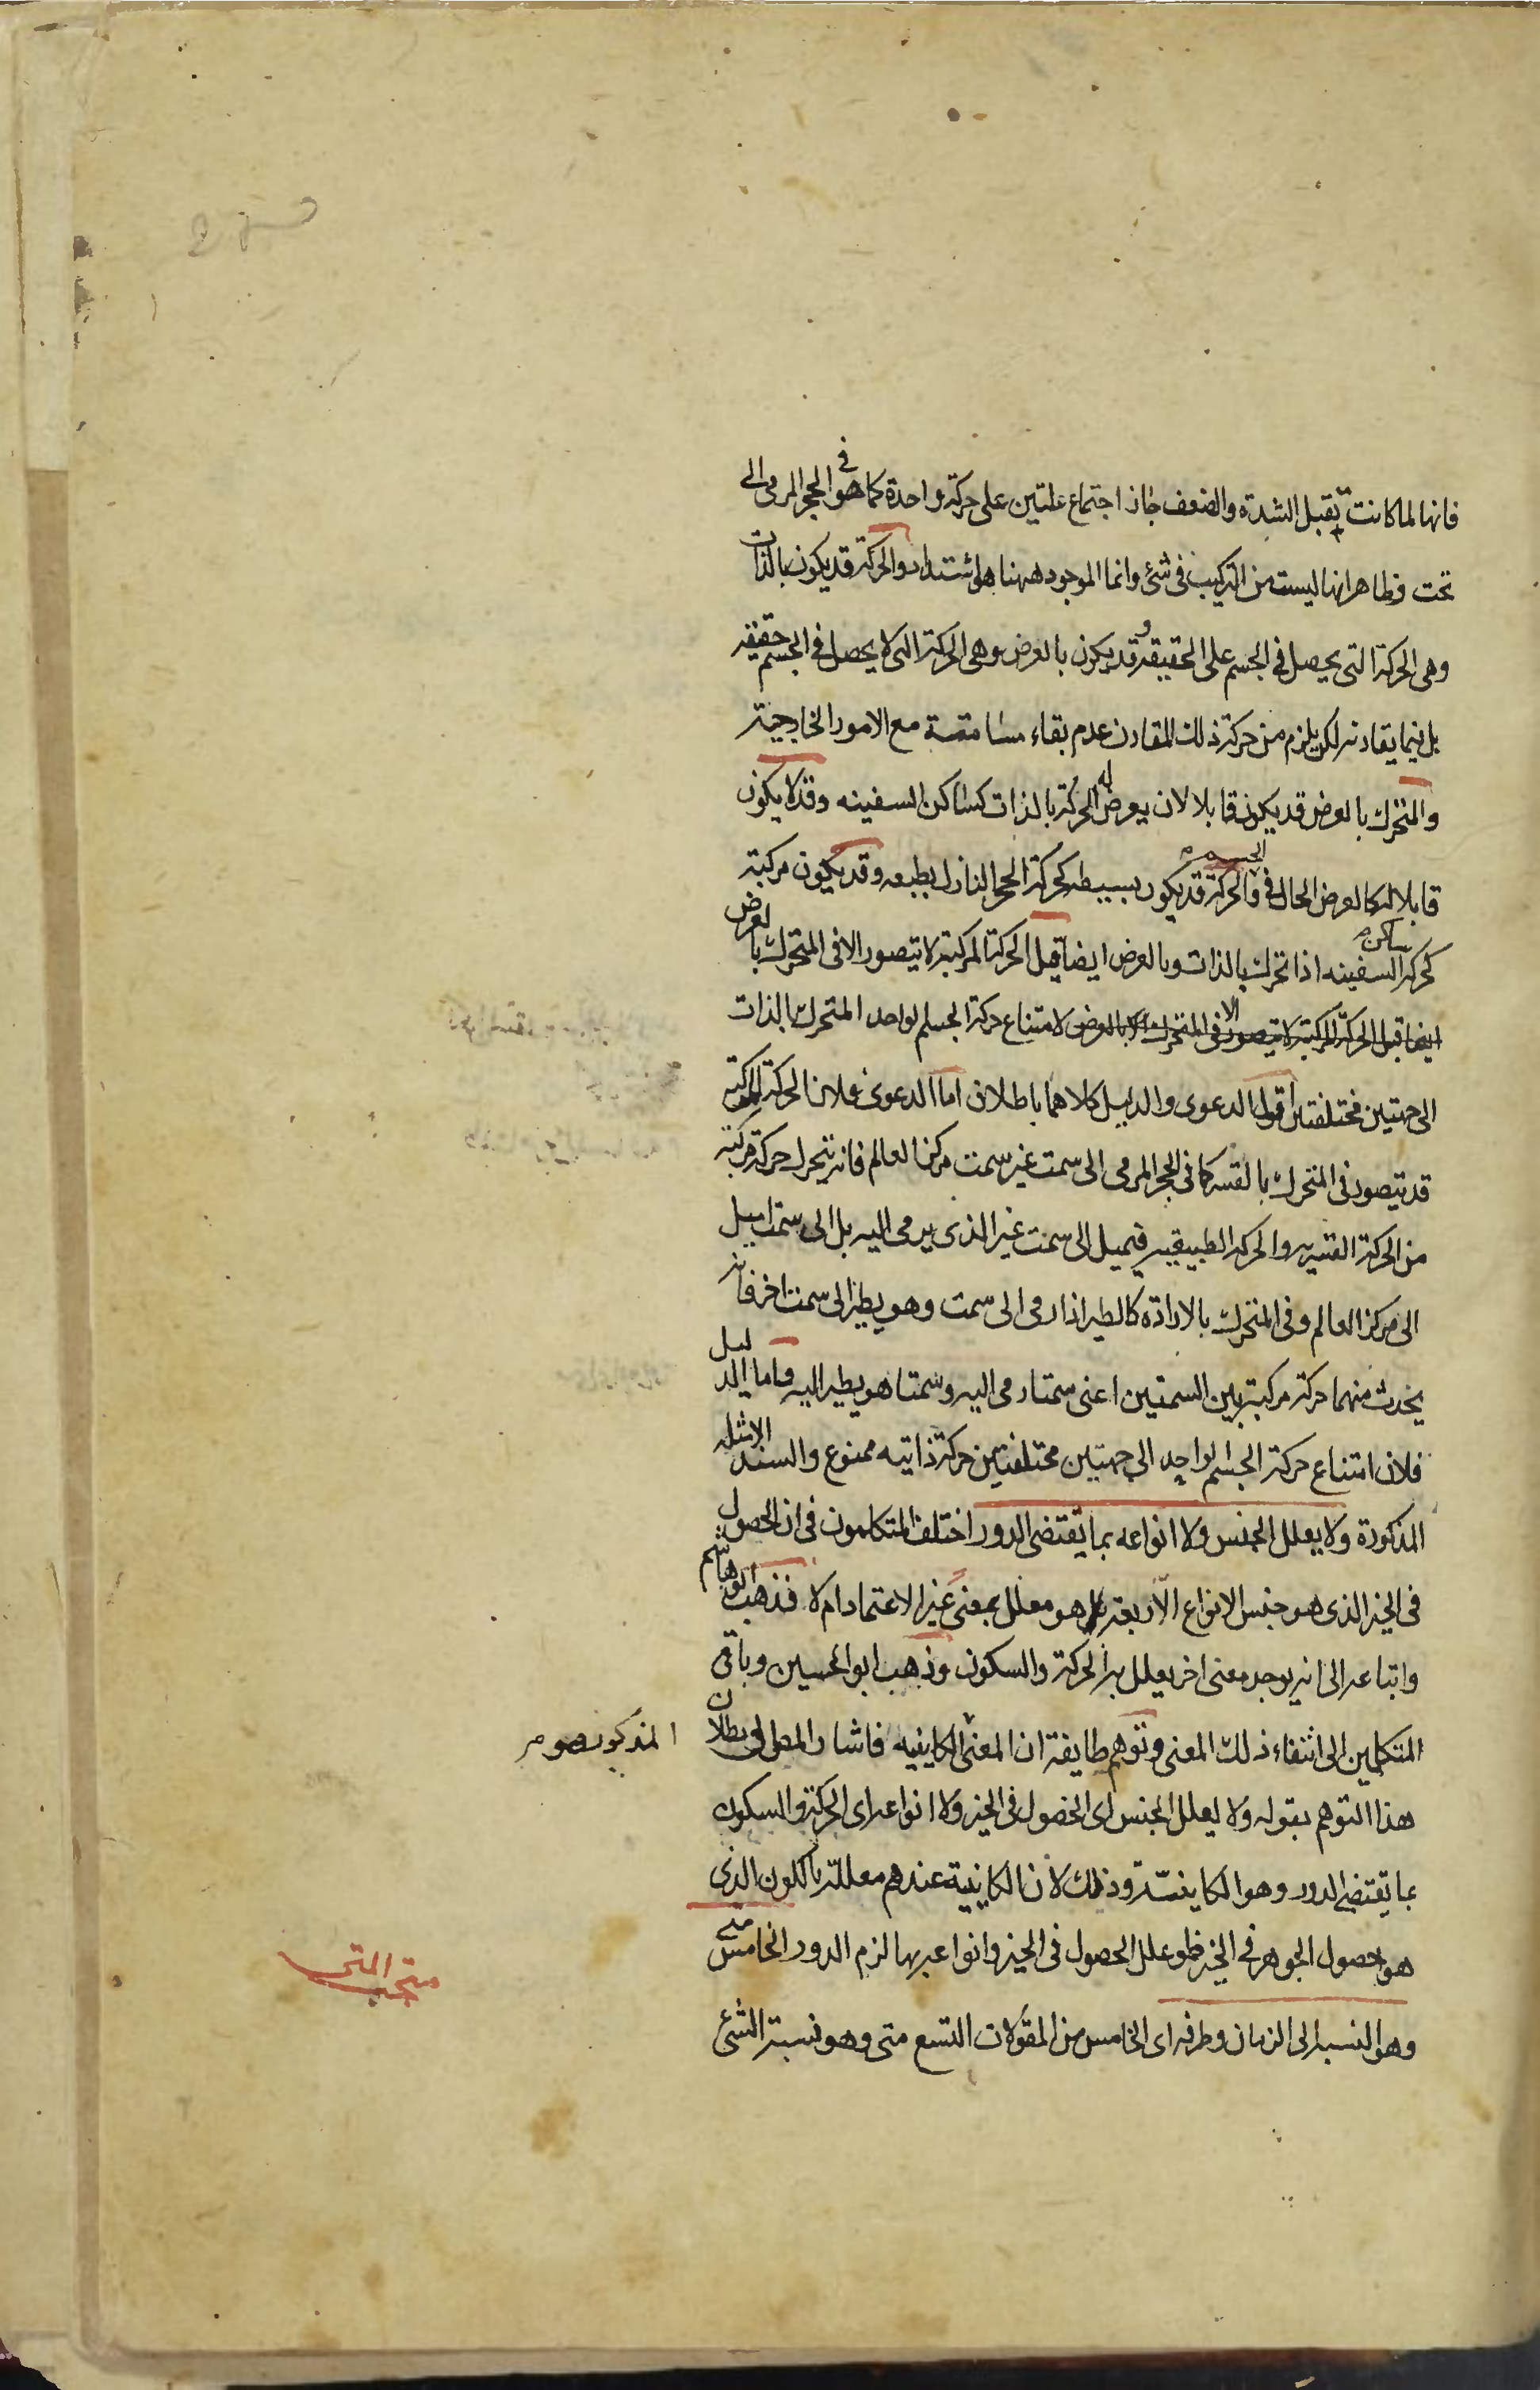 فانها لما كانت يقبل الشدة والضعف جاز اجتماع علتين على حركة واحدة كما هو في الحجر المرمى الى
تحت وظاهر انها ليست من التركيب فى شئ وانما الموجود ههنا هو اشتداد والحركة قد يكون بالذات
وهى الحركة التى يحصل فى الجسم على الحقيقة وقد يكون بالعرض وهى الحركة التى لا يحصل فى الجسم حقيقة
بل فيما يقارنه لكن يلزم من حركة ذلك المقارن عدم بقاء مسامتة مع الامور الخارجية
والمتحرك بالعرض قد يكون قابلا لان يعرض له الحركة بالذات كساكن السفينه وقد لا يكون
قابلا لها كالعرض الحال فى الجسم والحركة قد يكون بسيطه كحركة الحجر النازل بطبعه وقد يكون مركبة
كحركة ساكن السفينه اذا تحرك بالذات وبالعرض ايضا قيل الحركة المركبة لا تتصور الا فى المتحرك بالعرض
ايضا قيل الحركة المركبة لا تتصور الا فى المتحرك بالعرض لامتناع حركة الجسم لواحد المتحرك بالذات
الى جهتين مختلفتين اقول الدعوى والدليل كلاهما باطلان اما الدعوى فلان الحركة المركبة
قد تتصور فى المتحرك بالقسر كما فى الحجر المرمى الى سمت غير سمت مركز العالم فانه يتحرك حركة مركبة
من الحركة القسرية والحركة الطبيعية فيميل الى سمت غير الذى يرمى اليه بل الى سمت اميل
الى مركز العالم وفى المتحرك بالارادة كالطير اذا رمى الى سمت وهو يطير الى سمت اخر فانه
يحدث منهما حركة مركبة بين السمتين اعنى سمتا رمى اليه وسمتا هو يطير اليه واما الدليل
فلان امتناع حركة الجسم لواحد الى جهتين مختلفتين حركة ذاتيه ممنوع والسند الامثله
المذكورة ولا يعلل الجنس ولا انواعه بما تقتضى الدور اختلف المتكلمون فى ان الحصول
فى الحيز الذى هو جنس الانواع الاربعة هل هو معلل بمعنى غير الاعتماد ام لا فذهب ابوهاشم
واتباعه الى انه يوجد معنى اخر يعلل به الحركة والسكون وذهب ابو الحسين وباقى
المتكلمين الى انتفاء ذلك المعنى وتوهم طايفة ان المعنى الكاينيه فاشار المص الى بطلان
المذكور هو
هذا التوهم بقوله ولا يعلل الجنس اى الحصول فى الحيز ولا انواعه اى الحركة والسكون
بما يقتضى الدور وهو الكاينية وذلك لان الكاينية عندهم معللة بالكون الذى
هو حصول الجوهر فى الحيز فلو علل الحصول فى الحيز وانواعه بها لزم الدور الخامس متى
وهو النسبة الى الزمان وطرفه اى الخامس من المقولات التسع متى وهو نسبة الشئ